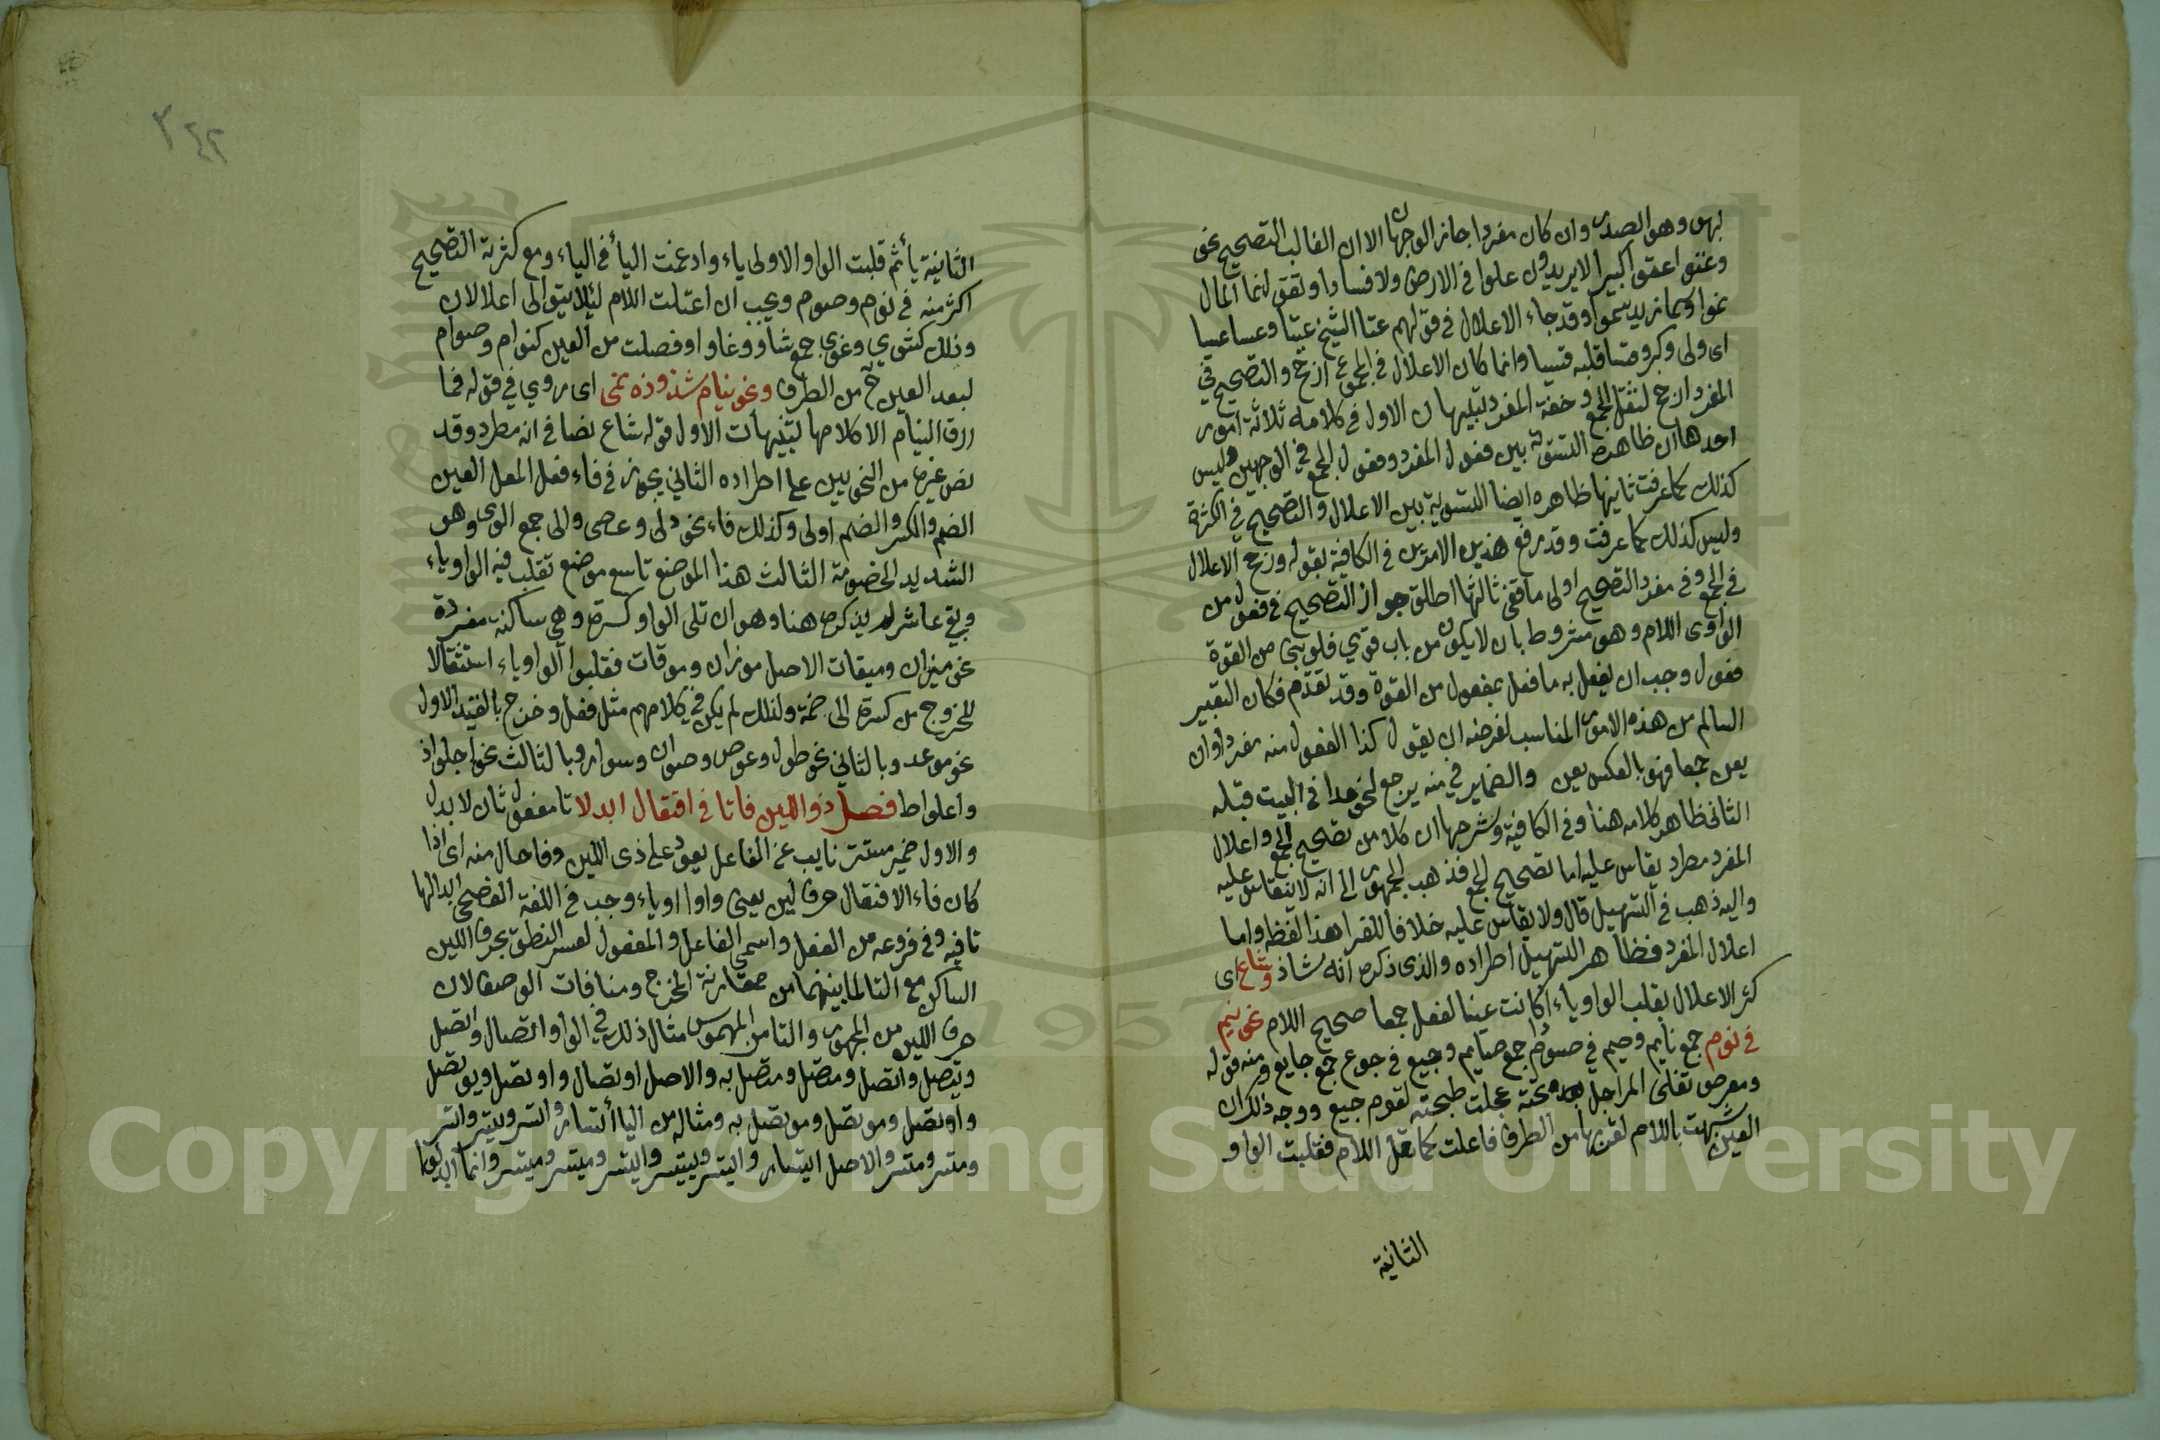 لبهو وهو الصدر وان كان مفردا جاز الوجهان الا ان الغالب التصحيح نحو
وعتوا عتوا كبيرا لا يريدون علوا في الارض ولا فسادا وتقول نما المال
نموا وسما زيد سموا وقد جاء الاعلال في قولهم عتا الشيخ عتيا وعسا عسيا
اى ولى وكبر وقسا قلبه قسيا وانما كان الاعلال في الجمع ارجح والتصحيح في
المفرد ارجح لثقل الجمع وخفة المفرد تنبيهان الاول في كلامه ثلاثة امور
احدها ان ظاهره التسوية بين فعول المفرد وفعول الجمع في الوجهين وليس
كذلك كما عرفت ثانيها ظاهره ايضا التسوية بين الاعلال والتصحيح في الكثرة
وليس كذلك كما عرفت وقد رفع هذين الامرين في الكافية بقوله ورجح الاعلال
في الجمع وفى مفرد التصحيح اولى ما قفى ثالثها اطلق جواز التصحيح في فعول من
الواوى اللام وهو مشروط بان لا يكون من باب قوي فلو بنى من القوة
فعول وجب ان يفعل به ما فعل بمفعول من القوة وقد تقدم فكان التعبير
السالم من هذه الامور المناسب لغرضه ان يقول كذا الفعول منه مفردا وان
يعن جمعا فهو بالعكس يعن والضمير في منه يرجع لنحو عدا في البيت قبله
الثانى ظاهر كلامه هنا وفى الكافية وشرحها ان كلا من تصحيح الجمع واعلال
المفرد مطرد يقاس عليه اما تصحيح الجمع فذهب الجمهور الى انه لا يقاس عليه
واليه ذهب في التسهيل قال ولا يقاس عليه خلافا للفرا هذا لفظه واما
اعلال المفرد فظاهر التسهيل اطراده والذى ذكره انه شاذ وشاع اى
كثر الاعلال بقلب الواو ياء اذا كانت عينا لفعل جمعا صحيح اللام نحو نيم
في نوم جمع نايم وصيم في صوم جمع صيايم وجيع في جوع جمع جايع ومنه قوله
ومعرص تغلى المراجل تحته عجلت طبخته لقوم جيع ووجه ذلك ان
العين شبهت باللام لقربها من الطرف فاعلت كما تعل اللام فقلبت الواو
الثانية
٣٤٢
الثانية يأ ثم قلبت الواو الاولى ياء وادغمت اليأ في الياء ومع كثرته التصحيح
اكثر منه في نوم وصوم ويجب ان اعتلت اللام ليلا يتوالى اعلالان
وذلك كشوي وغوي جمع شاو وغاو او فصلت من العين كنوام وصوام
لبعد العين ح من الطرف ونحو نيام شذوذه نمى اى روي في قوله فما
ارق النيام الا كلامها تنبيهات الاول قوله شاع نصا في انه مطرد وقد
نص غيره من النحويين على اطراده الثاني يجوز في فاء فعل المعل العين
الضم والكسر والضم اولى وكذلك فاء نحو دلى وعصى والى جمع الوى وهو
الشديد الخصومة الثالث هذا الموضع تاسع موضع تقلب فيه الواو ياء
وبقى عاشر لم يذكره هنا وهو ان تلى الواو كسرة وهي ساكنة مفردة
نحو ميزان وميقات الاصل موزان وموقات فقلبوا الواو ياء استثقالا
للخروج من كسرة الى ضمة ولذلك لم يكن في كلامهم مثل فعل وخرج بالقيد الاول
نحو موعد وبالثاني نحو طول وعوض وصوان وسوار وبالثالث نحو اجلواذ
واعلواط فصل ذو اللين فا تا في افتعال ابدلا تا مفعول ثان لابدل
والاول ضمير مستتر نايب عن الفاعل يعود على ذى اللين وفا حال منه اى اذا
كان فاء الافتعال حرف لين يعنى واوا او ياء وجب في اللغة الفصحى ابدالها
تا فيه وفى فروعه من الفعل واسمى الفاعل والمفعول لعسر النطق بحرف اللين
الساكن مع التا لما بينهما من مقاربة المخرج ومنافات الوصف لان
حرف اللين من المجهور والتا من المهموس مثال ذلك في الواو اتصال واتصل
ويتصل واتصل ومتصل ومتصل به والاصل اوتصال واوتصل ويوتصل
واوتصل وموتصل وموتصل به ومثاله من اليا اتسار واتسر ويتسر واتسر
ومتسر ومتسر والاصل ايتسار وايتسر وييتسر وايتسر وميتسر وميتسر وانما ابدلوا
Copyright © King Saud University
1957